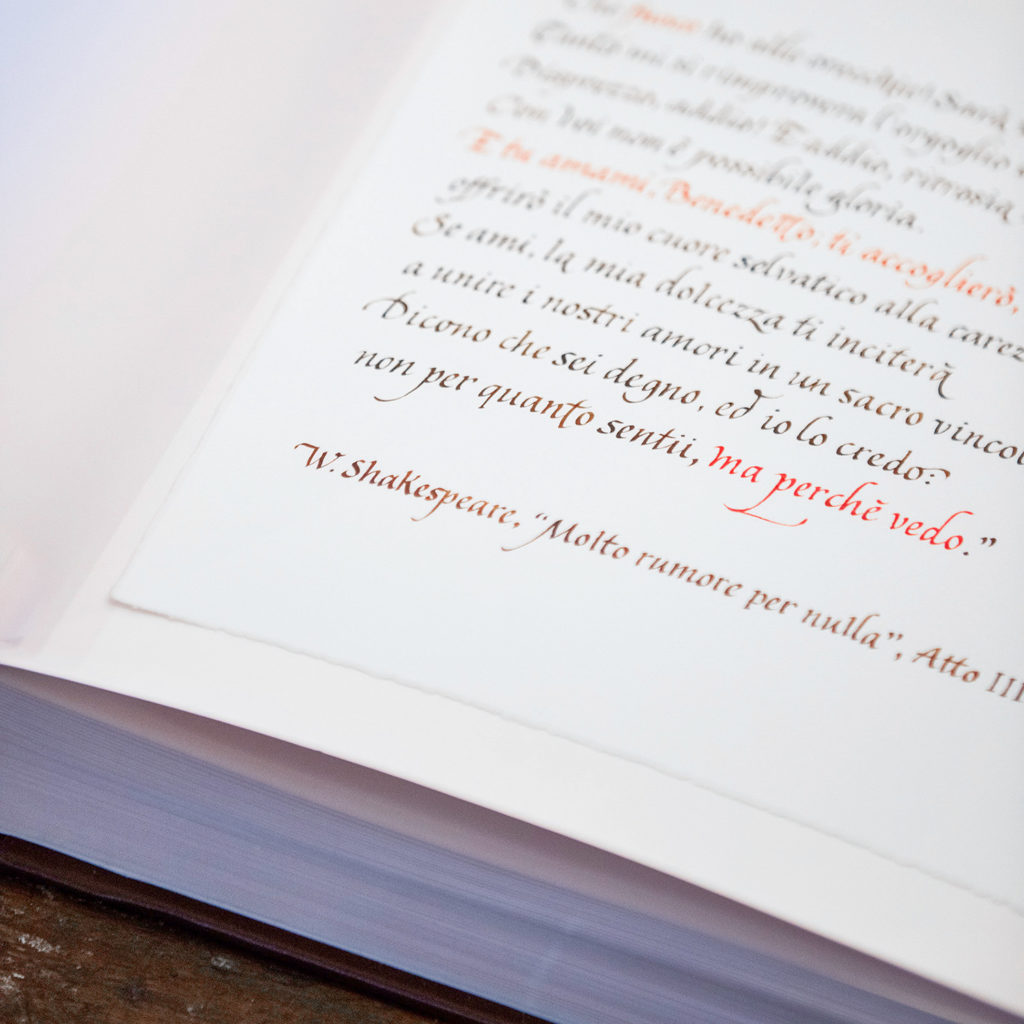 Che fuoco ho alle orecchie! Sarà
Tanto mi si rimprovera l'orgoglio
Disprezzo, addio! E addio, ritrosia
Con voi non è possibile gloria.
E tu amami, Benedetto, ti accoglierò,
offrirò il mio cuore selvatico alla carez
Se ami, la mia dolcezza ti inciterà
a unire i nostri amori in un sacro vincol
Dicono che sei degno, ed io lo credo:
non per quanto sentii, ma perchĕ vedo."
W. Shakespeare, "Molto rumore per nulla", Atto III